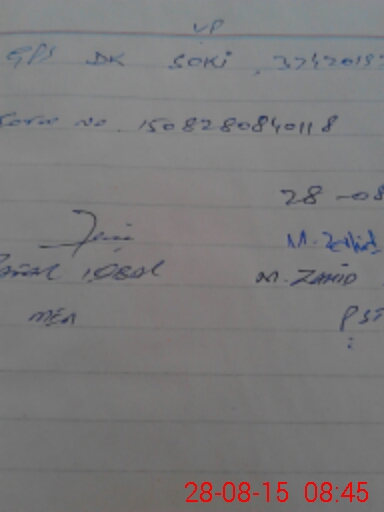 UP
GPS DK SOKi, 3242019
no. 1508280840118
28-08
M. Zahid
iQBAL M. ZAHID
MEA PST
28-08-15 08:45